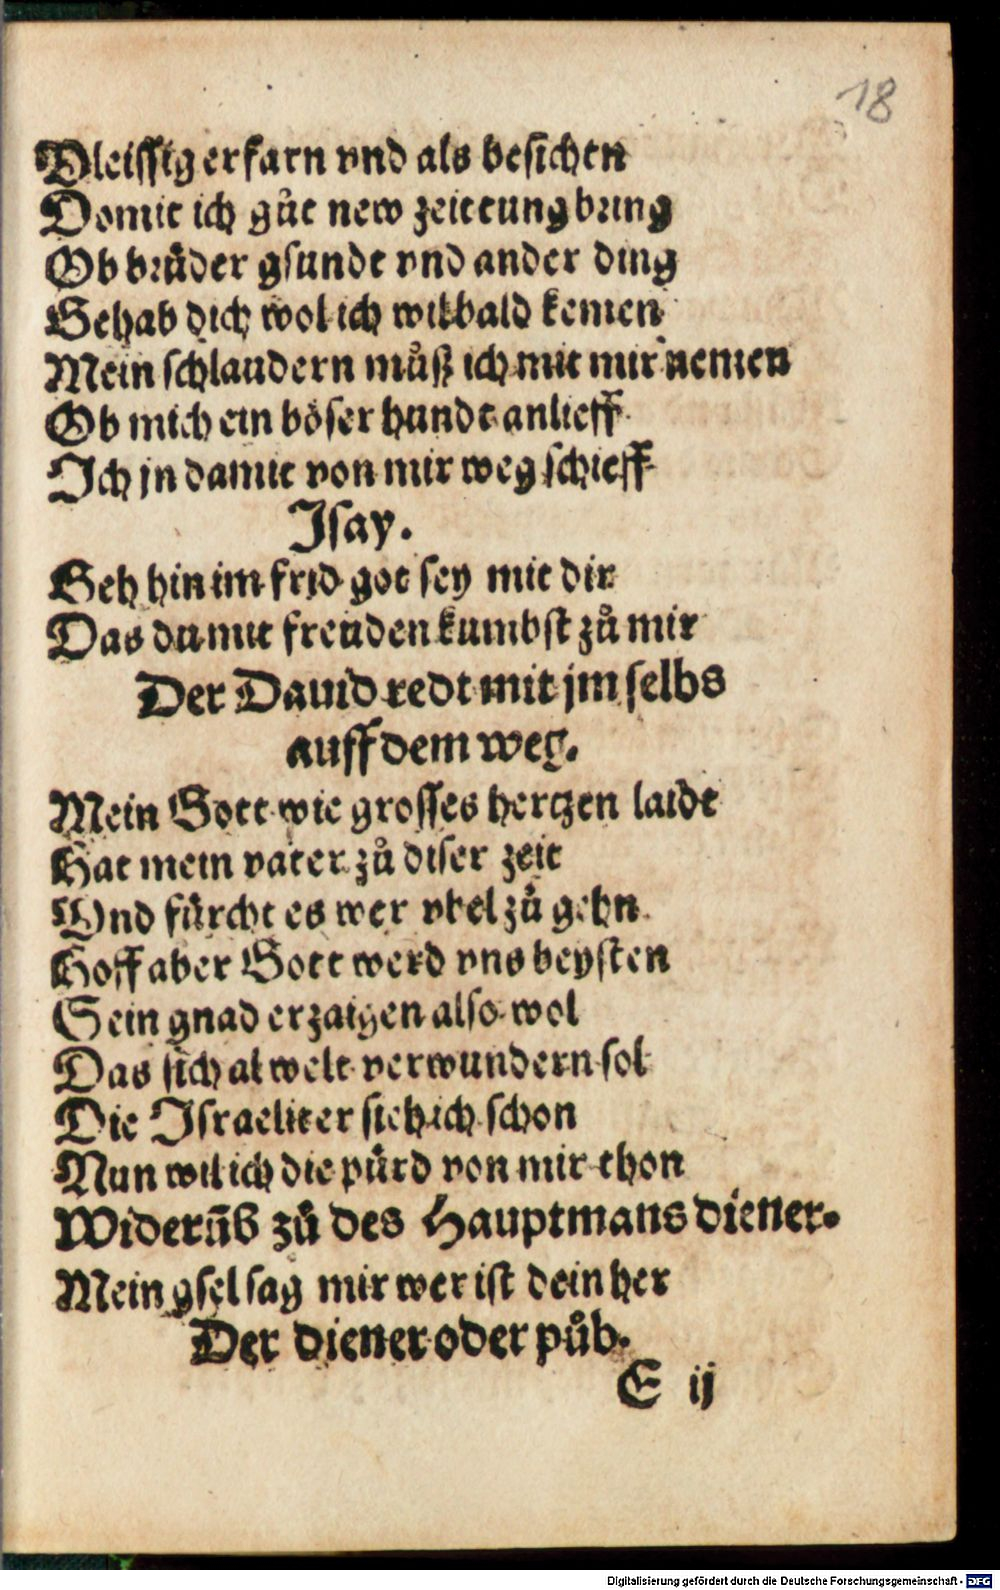 18
Vleissig erfarn vnd als besichen
Domit ich gůt new zeittung bring
Ob brůder gsundt vnd ander ding
Gehab dich wol ich wil bald kemen
Mein schlaudern můß ich mit mir nemen
Ob mich ein böser hundt anlieff
Ich jn damit von mir weg schieff
Isay.
Geh hin im frid got sey mit dir
Das du mit freuden kumbst zů mir
Der Dauid redt mit jm selbs
auff dem weg.
Mein Gott wie grosses hertzen laidt
Hat mein vater zů diser zeit
Vnd fürcht es wer vbel zů gehn
Hoff aber Gott werd vns beysten
Sein gnad erzaigen also wol
Das sich al welt verwundern sol
Die Israeliter sieh ich schon
Nun wil ich die pürd von mir thon
Widerum̃b zů des Hauptmans diener.
Mein gsel sag mir wer ist dein her
Der diener oder půb.
E ij
Digitalisierung gefördert durch die Deutsche Forschungsgemeinschaft - DFG